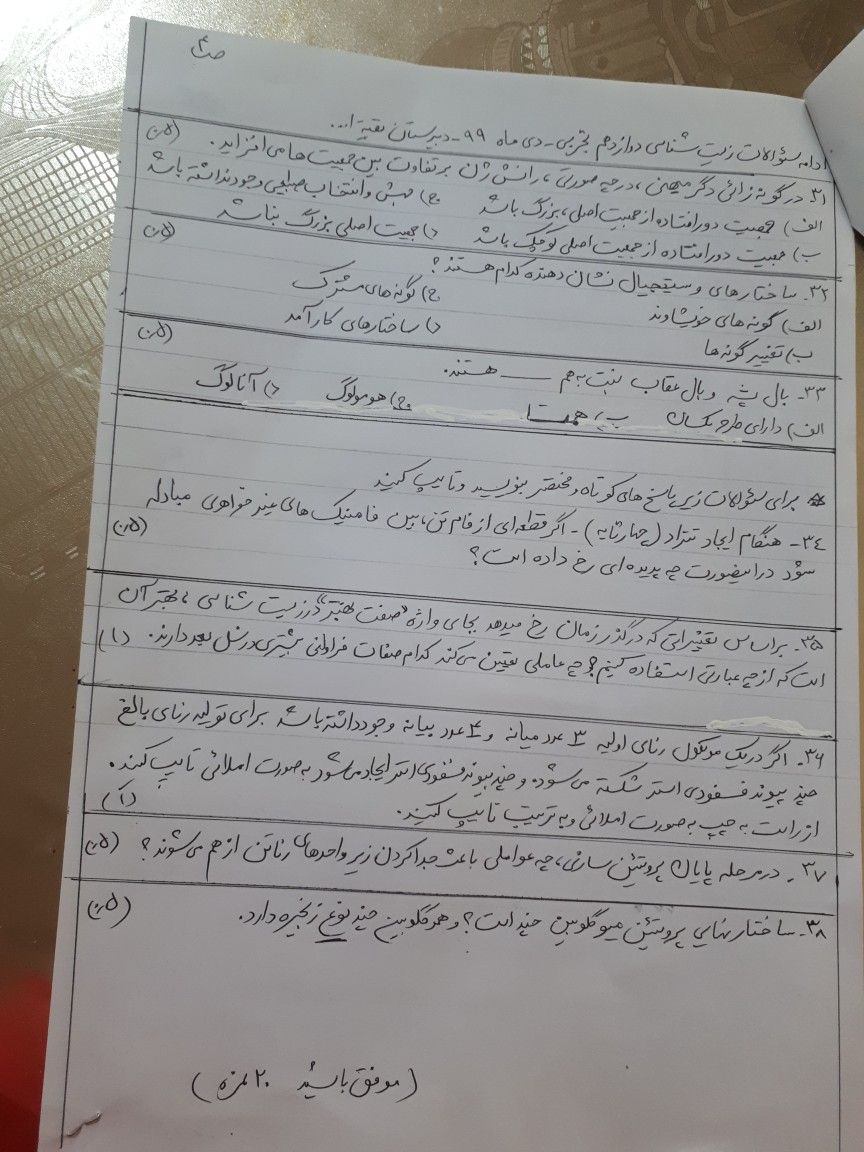 ص۴
ادامه سئوالات زیست شناسی دوازدهم تجربی - دی ماه ۹۹ - دبیرستان بقیة ا...
۳۱. در گونه زائی دگر میهنی، در چه صورتی، رانش ژن بر تفاوت بین جمعیت ها می افزاید. (۰/۵)
الف) جمعیت دور افتاده از جمعیت اصلی، بزرگ باشد ج) جهش و انتخاب طبیعی وجود نداشته باشد
ب) جمعیت دور افتاده از جمعیت اصلی کوچک باشد د) جمعیت اصلی بزرگ نباشد
۳۲. ساختارهای وستیجیال نشان دهنده کدام هستند؟ (۰/۵)
الف) گونه های خویشاوند ج) گونه های مشترک
ب) تغییر گونه ها د) ساختارهای کارآمد
۳۳- بال پشه و بال عقاب نسبت به هم ـــــ هستند. (۰/۵)
الف) دارای طرح یکسان ب) همتا ج) هومولوگ د) آنالوگ
* برای سئوالات زیر پاسخ های کوتاه و مختصر بنویسید و تایپ کنید
۳۴- هنگام ایجاد تتراد (چهارتایه) - اگر قطعه ای از فام تن، بین فامینک های غیر خواهری مبادله
شود در اینصورت چه پدیده ای رخ داده است؟ (۰/۵)
۳۵- بر اساس تغییراتی که در گذر زمان رخ میدهد بجای واژه «صفت بهتر» در زیست شناسی، بهتر آن
است که از چه عبارتی استفاده کنیم و چه عاملی تعیین می کند کدام صفات فراوانی بیشتری در نسل بعد دارند. (۱)
۳۶. اگر در یک مولکول رنای اولیه ۳ عدد میانه و ۴ عدد بیانه وجود داشته باشد برای تولید رنای بالغ
چند پیوند فسفودی استر شکسته می شود و چند پیوند فسفودی استر ایجاد می شود به صورت املائی تایپ کنید.
از راست به چپ به صورت املائی و به ترتیب تایپ کنید. (۱)
۳۷- در مرحله پایان پروتئین سازی، چه عواملی باعث جدا کردن زیر واحدهای رناتن از هم می شوند؟ (۰/۵)
۳۸- ساختار نهایی پروتئین میوگلوبین چند است؟ و هموگلوبین چند نوع زنجیره دارد. (۰/۵)
(موفق باشید ۲۰ نمره)